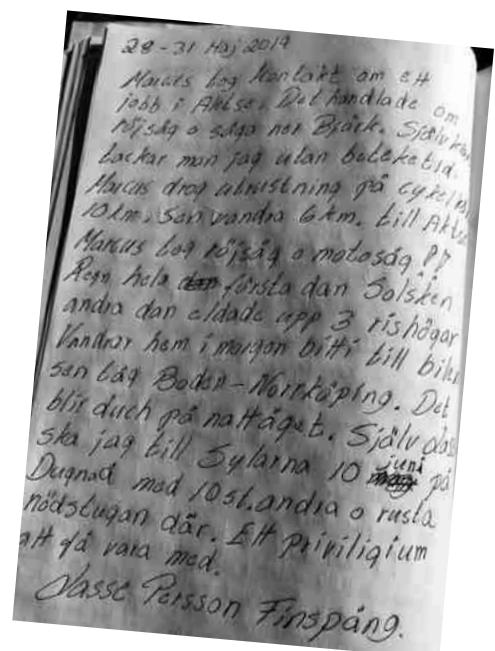 28-31 Maj 2019
Marcus tog kontakt om ett
jobb i Aktse. Det handlade om
röjsåg o såga ner Björk. Själv
tackar man jag utan betänketid.
Marcus drog utrustning på cykel
10km. Sen vandra 6km. till Aktse
Marcus tog röjsåg o motosåg !!
Regn hela första dan Solsken
andra dan eldade upp 3 rishögar
Vandrar hem i morgon bitti till bilen
sen tåg Boden-Norrköping. Det
blir duch på nattåget. Själv
ska jag till Sylarna 10 juni på
Dugnad med 10st. andra o rusta
nödstugan där. Ett priviligium
att få vara med.
Nasse Persson Finspång.